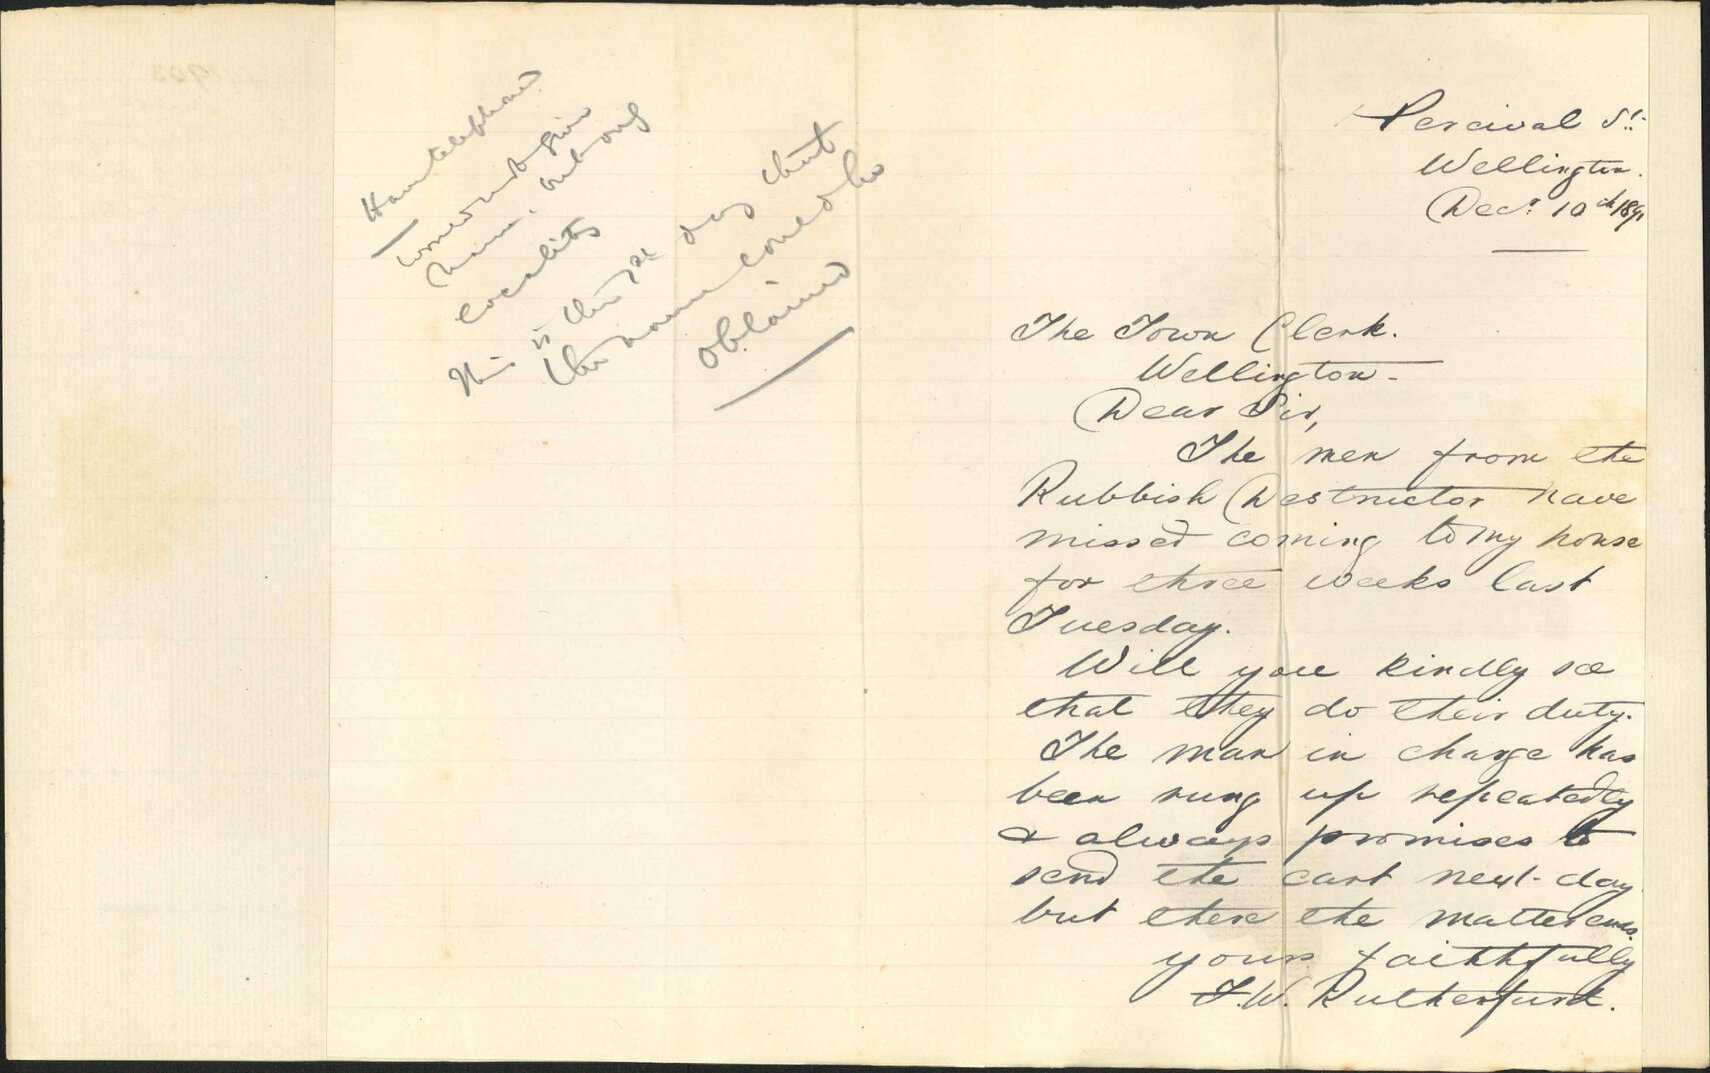 Have telephoned
would not give
name, but only
locality
This is the 1st day that
the name could be
obtained
Percival St.
Wellington.
Dec. 10th 189
The Town Clerk.
Wellington -
Dear Sir,
The men from the
Rubbish Destructor have
missed coming to my house
for three weeks last
Tuesday.
Will you kindly see
that they do their duty.
The man in charge has
been rung up repeatedly
& always promises to
send the cart next day
but there the matter ends.
yours faithfully
J.W. Rutherfurd.